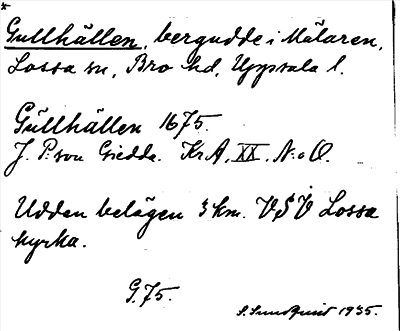 Gullhällen, bergudde i Mälaren,
Lossa sn, Bro hd, Uppsala l.
Gullhällen 1675.
J. P:son Giedda. KrA. XX. N:o O.
Udden belägen 3 km. VSV Lossa
kyrka.
G. 75.
S. Sundquist 1935.